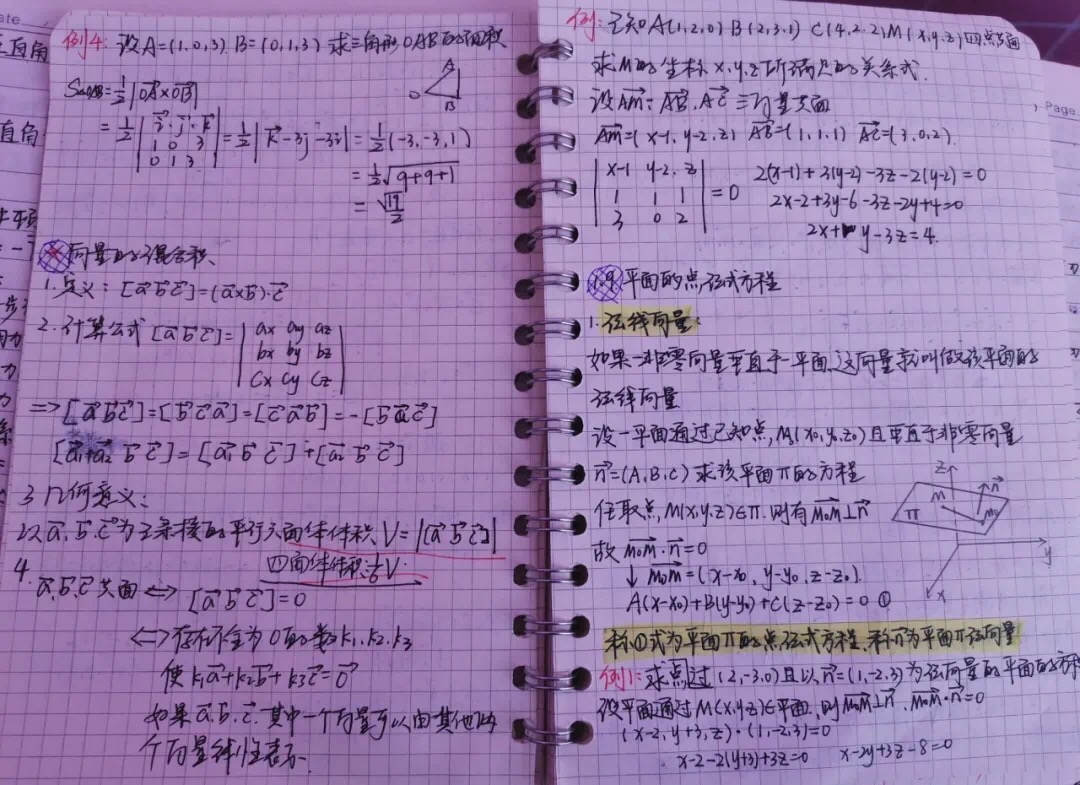 例4: 设A=(1,0,3) B=(0,1,3) 求三角形OAB的面积
S△OAB=½|OA×OB|
A
O
B
=½|i j k; 1 0 3; 0 1 3|=½|k-3j-3i|=½(-3,-3,1)
=½√9+9+1
=√19/2
* 向量的混合积、
1.定义: [a b c]=(a×b)·c
2.计算公式 [a b c]=|ax ay az; bx by bz; cx cy cz|
=>[a b c]=[b c a]=[c a b]=-[b a c]
[a1+a2 b c]=[a1 b c]+[a2 b c]
3 几何意义:
以a,b,c为三条棱的平行六面体体积V=|[a b c]|
四面体体积⅙V.
4. a,b,c共面<=>[a b c]=0
<=>存在不全为0的数k1,k2,k3
使k1a+k2b+k3c=0
如果a,b,c,其中一个向量可以由其他两
个向量线性表示.
Page
直角
直角
例: 已知A(1,2,0) B(2,3,1) C(4,2,2) M(x,y,z)四点共面
求M的坐标x,y,z所满足的关系式.
设AM, AB, AC 三向量共面
AM=(x-1,y-2,z) AB=(1,1,1) AC=(3,0,2).
|x-1 y-2 z; 1 1 1; 3 0 2|=0 2(x-1)+3(y-2)-3z-2(y-2)=0
2x-2+3y-6-3z-2y+4=0
2x+y-3z=4.
1.9 平面的点法式方程
1.法线向量:
如果一非零向量垂直于一平面,这向量就叫做该平面的
法线向量
设一平面通过已知点,M(x0,y0,z0)且垂直于非零向量
n=(A,B,C) 求该平面π的方程
任取点,M(x,y,z)∈π.则有M0M⊥n
故M0M·n=0
↓M0M=(x-x0,y-y0,z-z0).
A(x-x0)+B(y-y0)+C(z-z0)=0 ①
z
n
M
M0
π
y
x
称①式为平面π的点法式方程,称n为平面π法向量
例1: 求点过(2,-3,0)且以n=(1,-2,3)为法向量的平面的方程
设平面通过M(x,y,z)∈平面,则M0M⊥n, M0M·n=0
(x-2,y+3,z)·(1,-2,3)=0
x-2-2(y+3)+3z=0 x-2y+3z-8=0